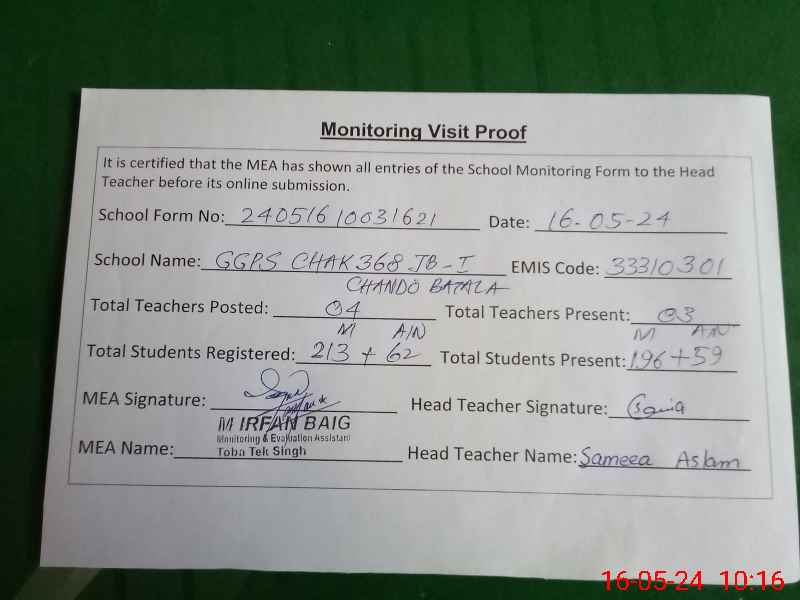 Monitoring Visit Proof
It is certified that the MEA has shown all entries of the School Monitoring Form to the Head
Teacher before its online submission.
School Form No: 24051610031621 Date: 16-05-24
School Name: GGPS CHAK 368 JB-I EMIS Code: 33310301
CHANDO BATALA
Total Teachers Posted: 04 Total Teachers Present: 03
M A/N M A/N
Total Students Registered: 213 + 62 Total Students Present: 196+59
MEA Signature: Head Teacher Signature:
M IRFAN BAIG
Monitoring & Evaluation Assistant
MEA Name: Toba Tek Singh Head Teacher Name: Sameea Aslam
16-05-24 10:16